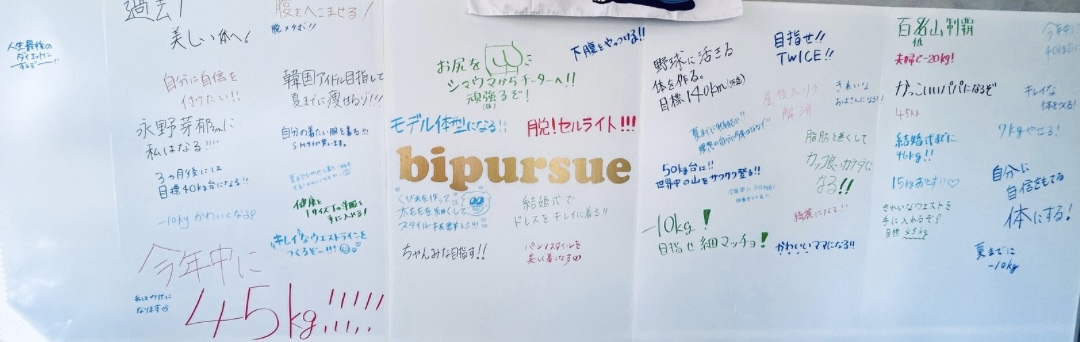 人生最後の
ダイエットに
美しい体へ!
自分に自信を
付けたい!!
永野芽郁ちゃんに
私はなる!!!
3ヶ月後には
目標40kg台になる!!
-10kg かわいくなる
今年中に
45kg!!!!!
腹をへこませる!
脱メタボ!!
韓国アイドル目指して
夏までに痩せるゾ!!!
自分の着たい服を着る!!
健康と
1サイズ下の洋服を
手に入れる!
キレイなウエストラインを
つくるぞー!!!
お尻を
シマウマからチーターへ!!
頑張るぞ!
モデル体型になる!!
脱!セルライト!!!
bipursue
くびれを作って
太ももを細くして
結婚式で
ドレスをキレイに着る!!
ちゃんみな目指す!!
パンツスタイルを
美しく着こなす
下腹をやっつける!!
野球に活きる
体を作る。
目標140km
目指せ!!
TWICE!!
50kg台に!!
世界中の山をサクサク登る!!
-10kg!
目指せ細マッチョ!
脂肪を速くして
カッコ良いカラダに
なる!!
綺麗になる!!
かわいいママになる!!
百名山制覇
夫婦で-20kg!
かっこいいパパになるぞ
45kg
結婚式までに
46kg!!
15kgおとす!!♡
きれいなウエストを
手に入れるぞ!
目標 45kg
今年中に
キレイな
体を作る!
7kgやせる!
自分に
自信をもてる
体にする!
夏までに
-10kg